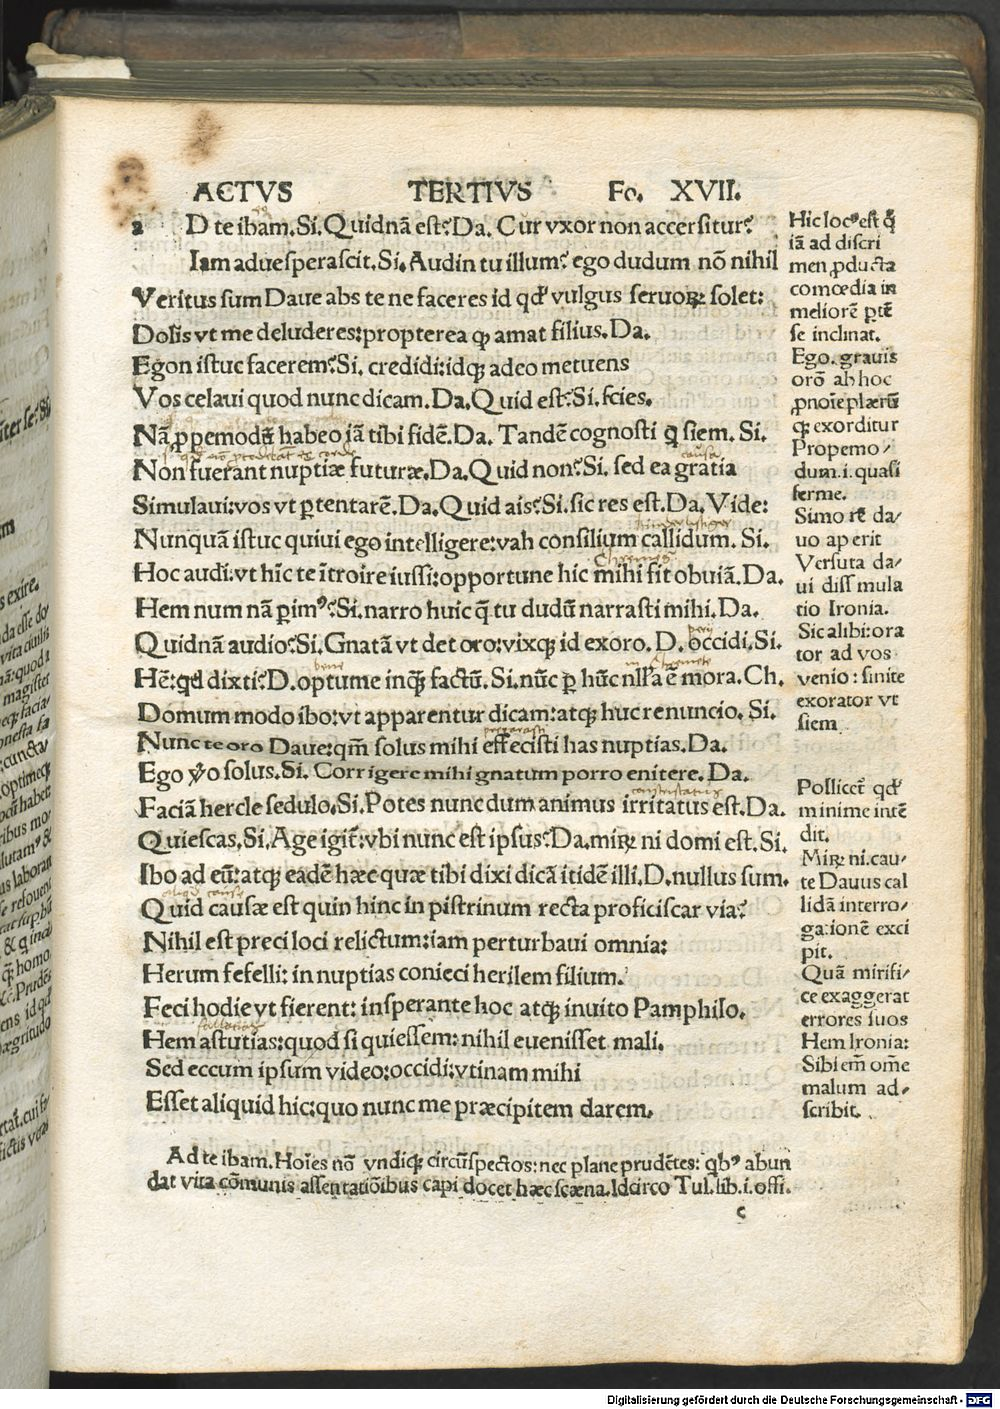 ACTVS TERTIVS Fo. XVII.
D te ibam. Si. Quidnā est? Da. Cur vxor non accersitur?
Iam aduesperascit. Si. Audin tu illum? ego dudum nō nihil
Veritus sum Daue abs te ne faceres id qđ vulgus seruoꝝ solet:
Dolis vt me deluderes: propterea ꝙ amat filius. Da.
Egon istuc facerem? Si. credidi: idqꝫ adeo metuens
Vos celaui quod nunc dicam. Da. Quid est? Si. scies.
Nā ꝓpemodū habeo iā tibi fidē. Da. Tandē cognosti q̄ siem. Si.
Non fuerant nuptiæ futuræ. Da. Quid non? Si. sed ea gratia
causa
Simulaui: vos vt ꝑtentarē. Da. Quid ais? Si. sic res est. Da. Vide:
Nunquā istuc quiui ego intelligere: vah consilium callidum. Si.
Hoc audi: vt hīc te ītroire iussi: opportune hic mihi fit obuiā. Da.
Hem num nā ꝑimꝰ? Si. narro huic q̄ tu dudū narrasti mihi. Da.
Quidnā audio? Si. Gnatā vt det oro: vixqꝫ id exoro. D. occidi. Si.
perij
Hē: qđ dixti? D. optume inqꝫ factū. Si. nūc ꝑ hūc nlľa ē mora. Ch.
bene
Domum modo ibo: vt apparentur dicam: atqꝫ huc renuncio. Si.
Nunc te oro Daue: qm̄ solus mihi effecisti has nuptias. Da.
Ego ꝟo solus. Si. Corrigere mihi gnatum porro enitere. Da.
Faciā hercle sedulo. Si. Potes nunc dum animus irritatus est. Da.
Quiescas. Si. Age igit̄: vbi nunc est ipsus? Da. miꝝ ni domi est. Si.
Ibo ad eū: atqꝫ eadē hæc quæ tibi dixi dicā itidē illi. D. nullus sum.
Quid causæ est quin hinc in pistrinum recta proficiscar via?
Nihil est preci loci relictum: iam perturbaui omnia:
Herum fefelli: in nuptias conieci herilem filium.
Feci hodie vt fierent: insperante hoc atqꝫ inuito Pamphilo.
Hem astutias: quod si quiessem: nihil euenisset mali.
Sed eccum ipsum video: occidi: vtinam mihi
Esset aliquid hic: quo nunc me præcipitem darem.
Ad te ibam. Hoīes nō vndiqꝫ circūspectos: nec plane prudētes: qbꝰ abun
dat vita cōmunis assentatiōibus capi docet hæc scæna. Idcirco Tul. lib. i. offi.
c
Hic locꝰ est q̄
iā ad discri
men ꝓducta
comœdia in
meliorē ptē
se inclinat.
Ego. grauis
orō ab hoc
ꝓnoīe plærū
qꝫ exorditur
Propemo/
dum. i. quasi
ferme.
Simo rē da/
uo aperit
Versuta da/
ui dissimula
tio Ironia.
Sic alibi: ora
tor ad vos
venio: sinite
exorator vt
siem
Pollicet̄ qđ
minime intē
dit.
Miꝝ ni. cau/
te Dauus cal
lidā interro/
gationē exci
pit.
Quā mirifi/
ce exaggerat
errores suos
Hem Ironia:
Sibi em̄ om̄e
malum ad/
scribit.
Digitalisierung gefördert durch die Deutsche Forschungsgemeinschaft - DFG